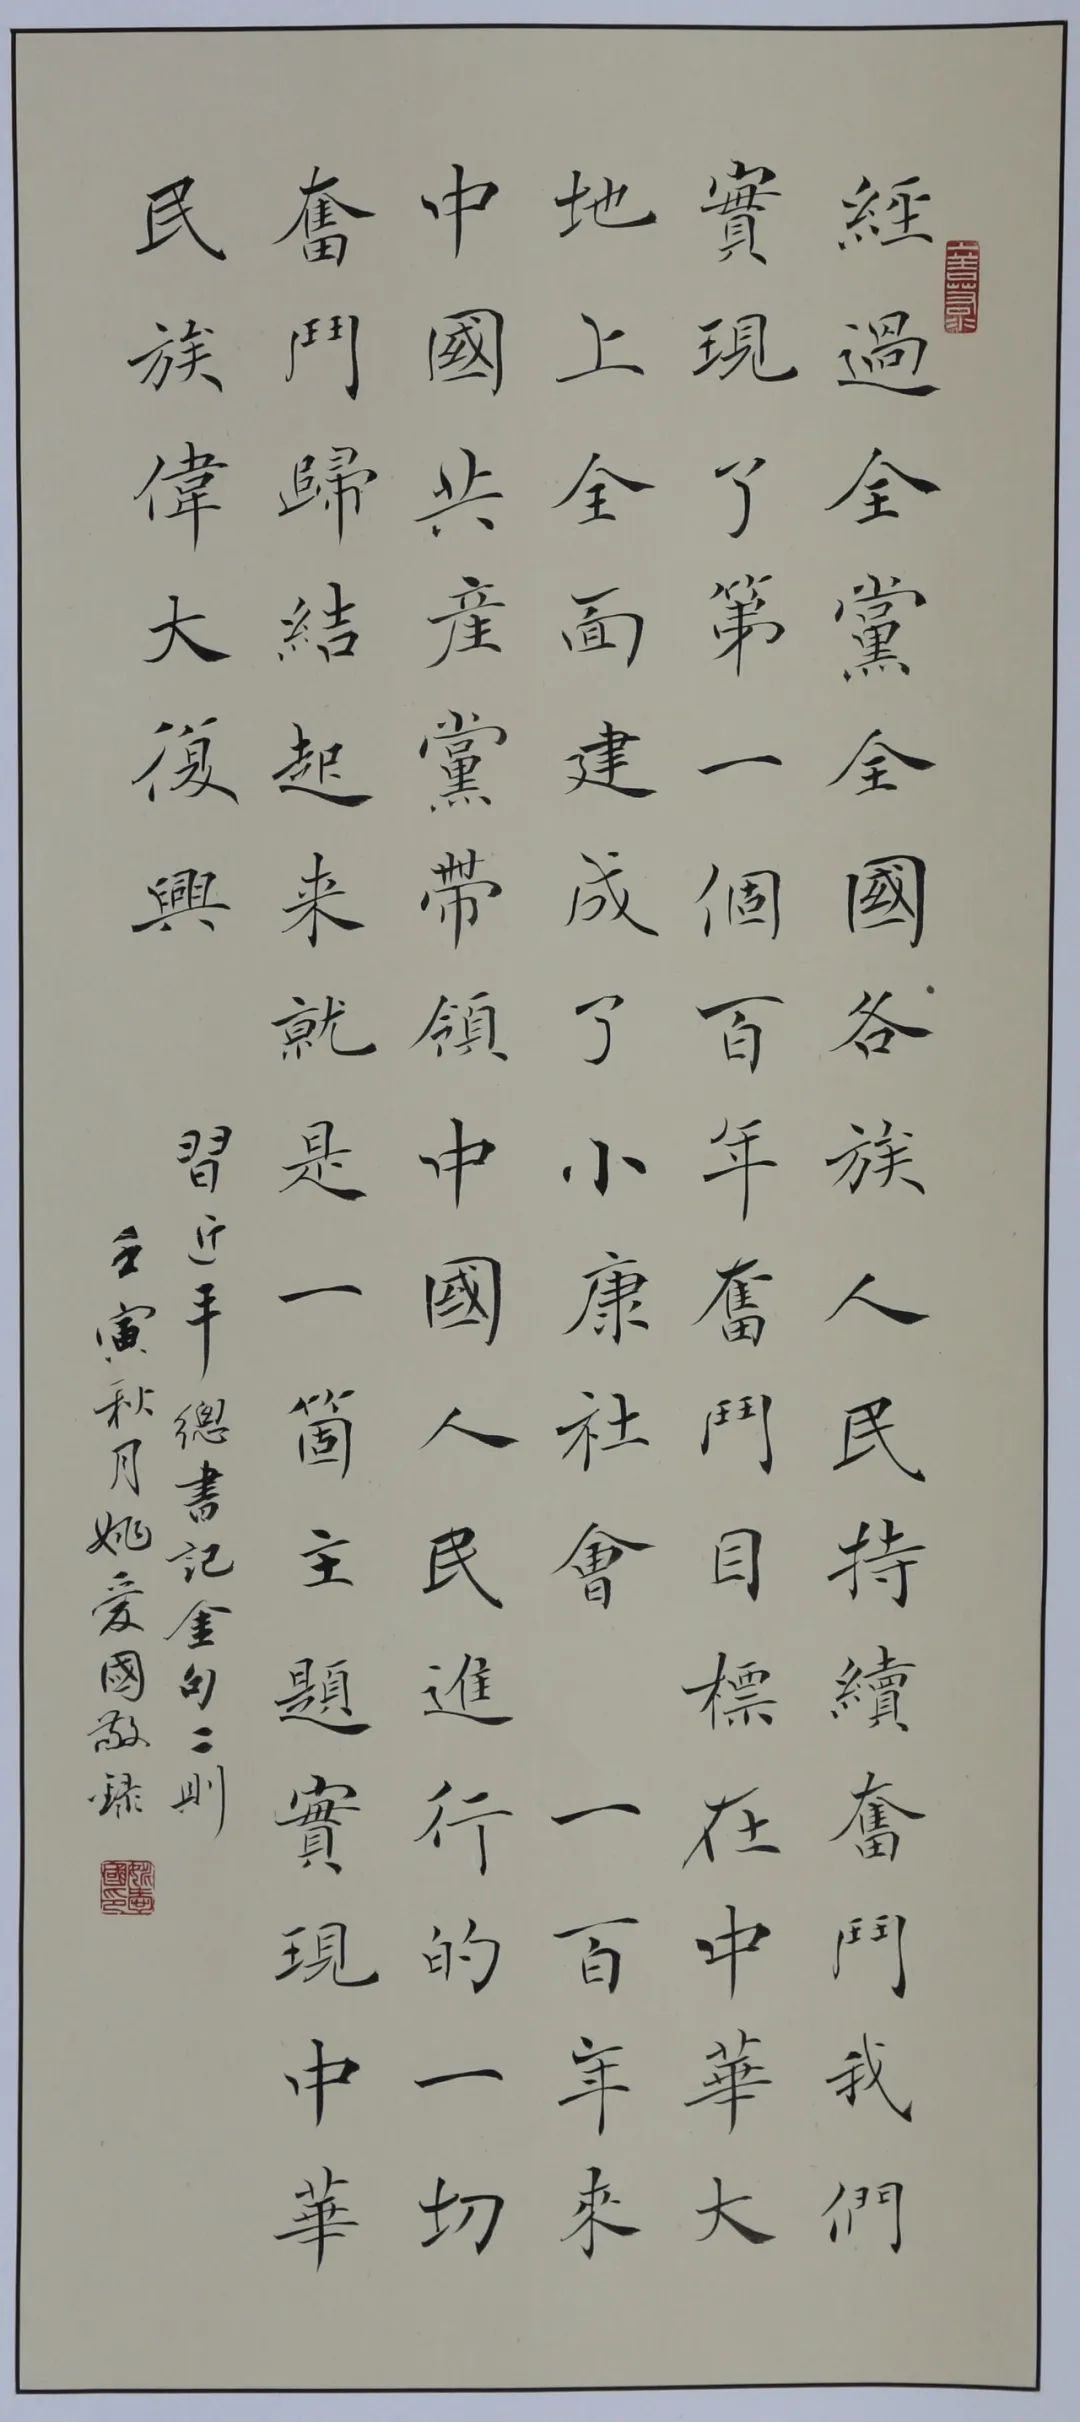 經過全黨全國各族人民持續奮鬥我們
實現了第一個百年奮鬥目標在中華大
地上全面建成了小康社會 一百年來
中國共産黨帶領中國人民進行的一切
奮鬥歸結起来就是一箇主題實現中華
民族偉大復興
習近平總書記金句二則
壬寅秋月姚爱國敬録